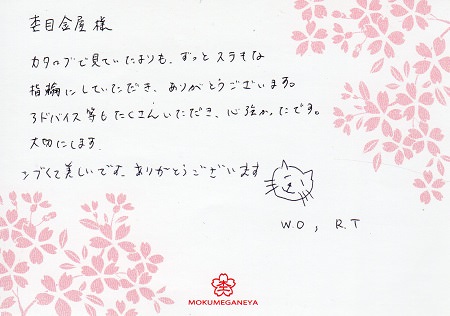 杢目金屋 様
カタログで見ていたよりも、ずっとステキな
指輪にしていただき、ありがとうございます。
アドバイス等もたくさんいただき、心強かったです。
大切にします。
シブくて美しいです。ありがとうございます
W.O , R.T
MOKUMEGANEYA